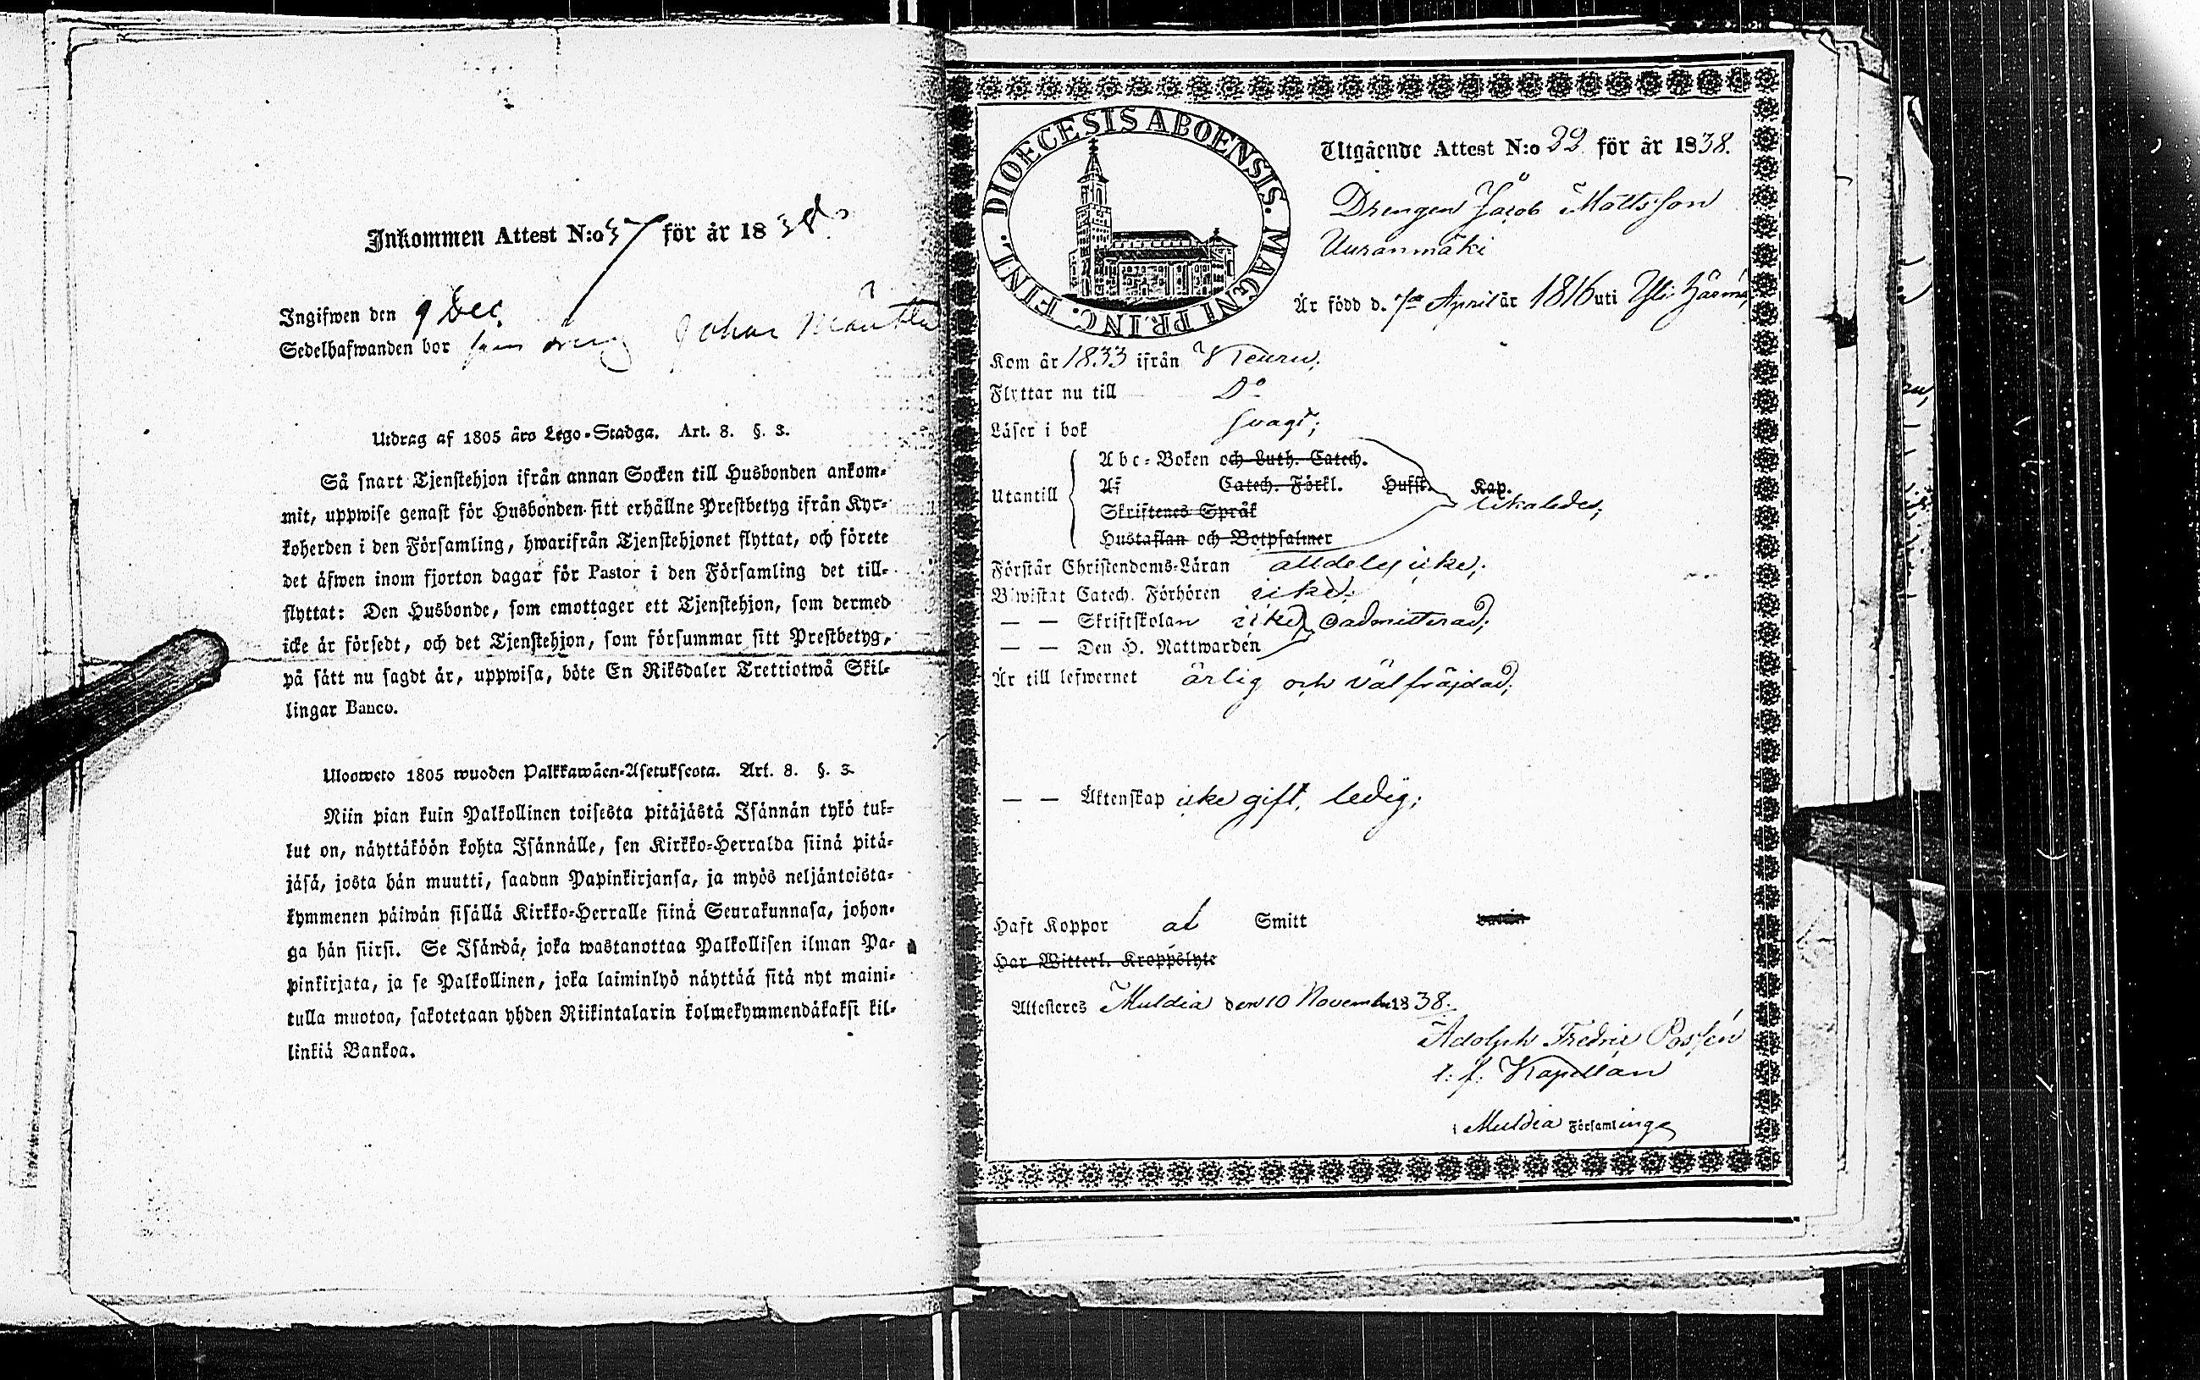 Inkommen Attest N:o 57 för år 1838.
Ingifwen den 9 Dec.
Sedelhafwanden bor som dreng Johan
Utdrag af 1805 års Lego-Stadga. Art. 8. §. 3.
Så snart Tjenstehjon ifrån annan Socken till Husbonden ankom-
mit, uppwise genast för Husbonden sitt erhållne Prestbetyg ifrån Kyr-
koherden i den Församling, hwarifrån Tjenstehjonet flyttat, och förete
det äfwen inom fjorton dagar för Pastor i den Församling det till-
flyttat: Den Husbonde, som emottager ett Tjenstehjon, som dermed
icke är försedt, och det Tjenstehjon, som försummar sitt Prestbetyg,
på sätt nu sagdt är, uppwisa, böte En Riksdaler Trettiotwå Skil-
lingar Banco.
Uloosweto 1805 wuoden Palkkawäen-Asetuksesta. Art. 8. §. 3.
Niin pian kuin Palkollinen toisesta pitäjästä Isännän tykö tul-
lut on, näyttäköön kohta Isännälle, sen Kirkko-Herralda siinä pitä-
jäsä, josta hän muutti, saadun Papinkirjansa, ja myös neljäntoista-
kymmenen päiwän sisällä Kirkko-Herralle siinä Seurakunnasa, johon-
ga hän siirsi. Se Isändä, joka wastanottaa Palkollisen ilman Pa-
pinkirjata, ja se Palkollinen, joka laiminlyö näyttää sitä nyt maini-
tulla muotoa, sakotetaan yhden Riikintalarin kolmekymmendäkaksi kil-
linkiä Bankoa.
DIOECESIS ABOENSIS. MAGNI PRINC. FINL.
Utgående Attest N:o 22 för år 1838.
Drengen Jacob Mattsson
Uuranmäki
Är född d. 7de April år 1816 uti Yli Härmä,
Kom år 1833 ifrån Keuru;
Flyttar nu till Do
Läser i bok svagt;
Abc-Boken och Luth. Catech.
Utantill Af Catech. Förkl. Husst. Kap. likaledes;
Skriftenes Språk
Hustaflan och Botpsalmer
Förstår Christendoms-Läran alldeles icke;
Biwistat Catech. Förhören icke;
— — Skriftskolan icke, oadmitterad;
— — Den H. Nattwarden
Är till lefwernet ärlig och välfräjdad;
— — Äktenskap icke gift, ledig;
Haft Koppor af Smitt
Har Witterl. Kroppslyte
Attesteres Muldia den 10 November 1838.
Adolph Fredric Possén
t. f. Kapellan
i Muldia Församlinge